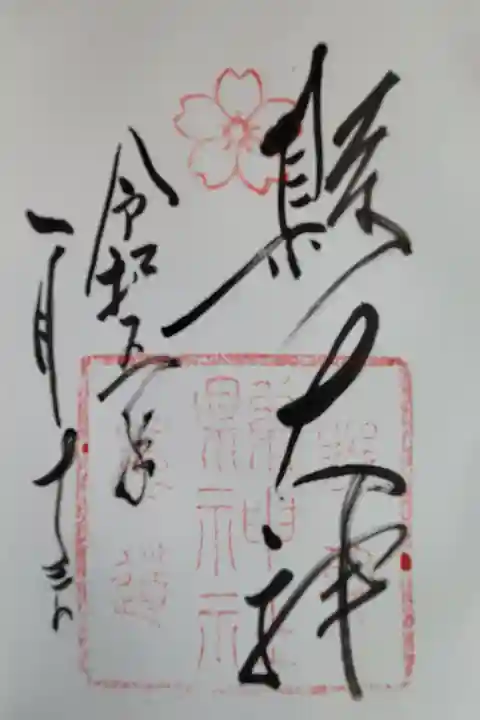 縣大神
縣神社
令和五年
一月十三日